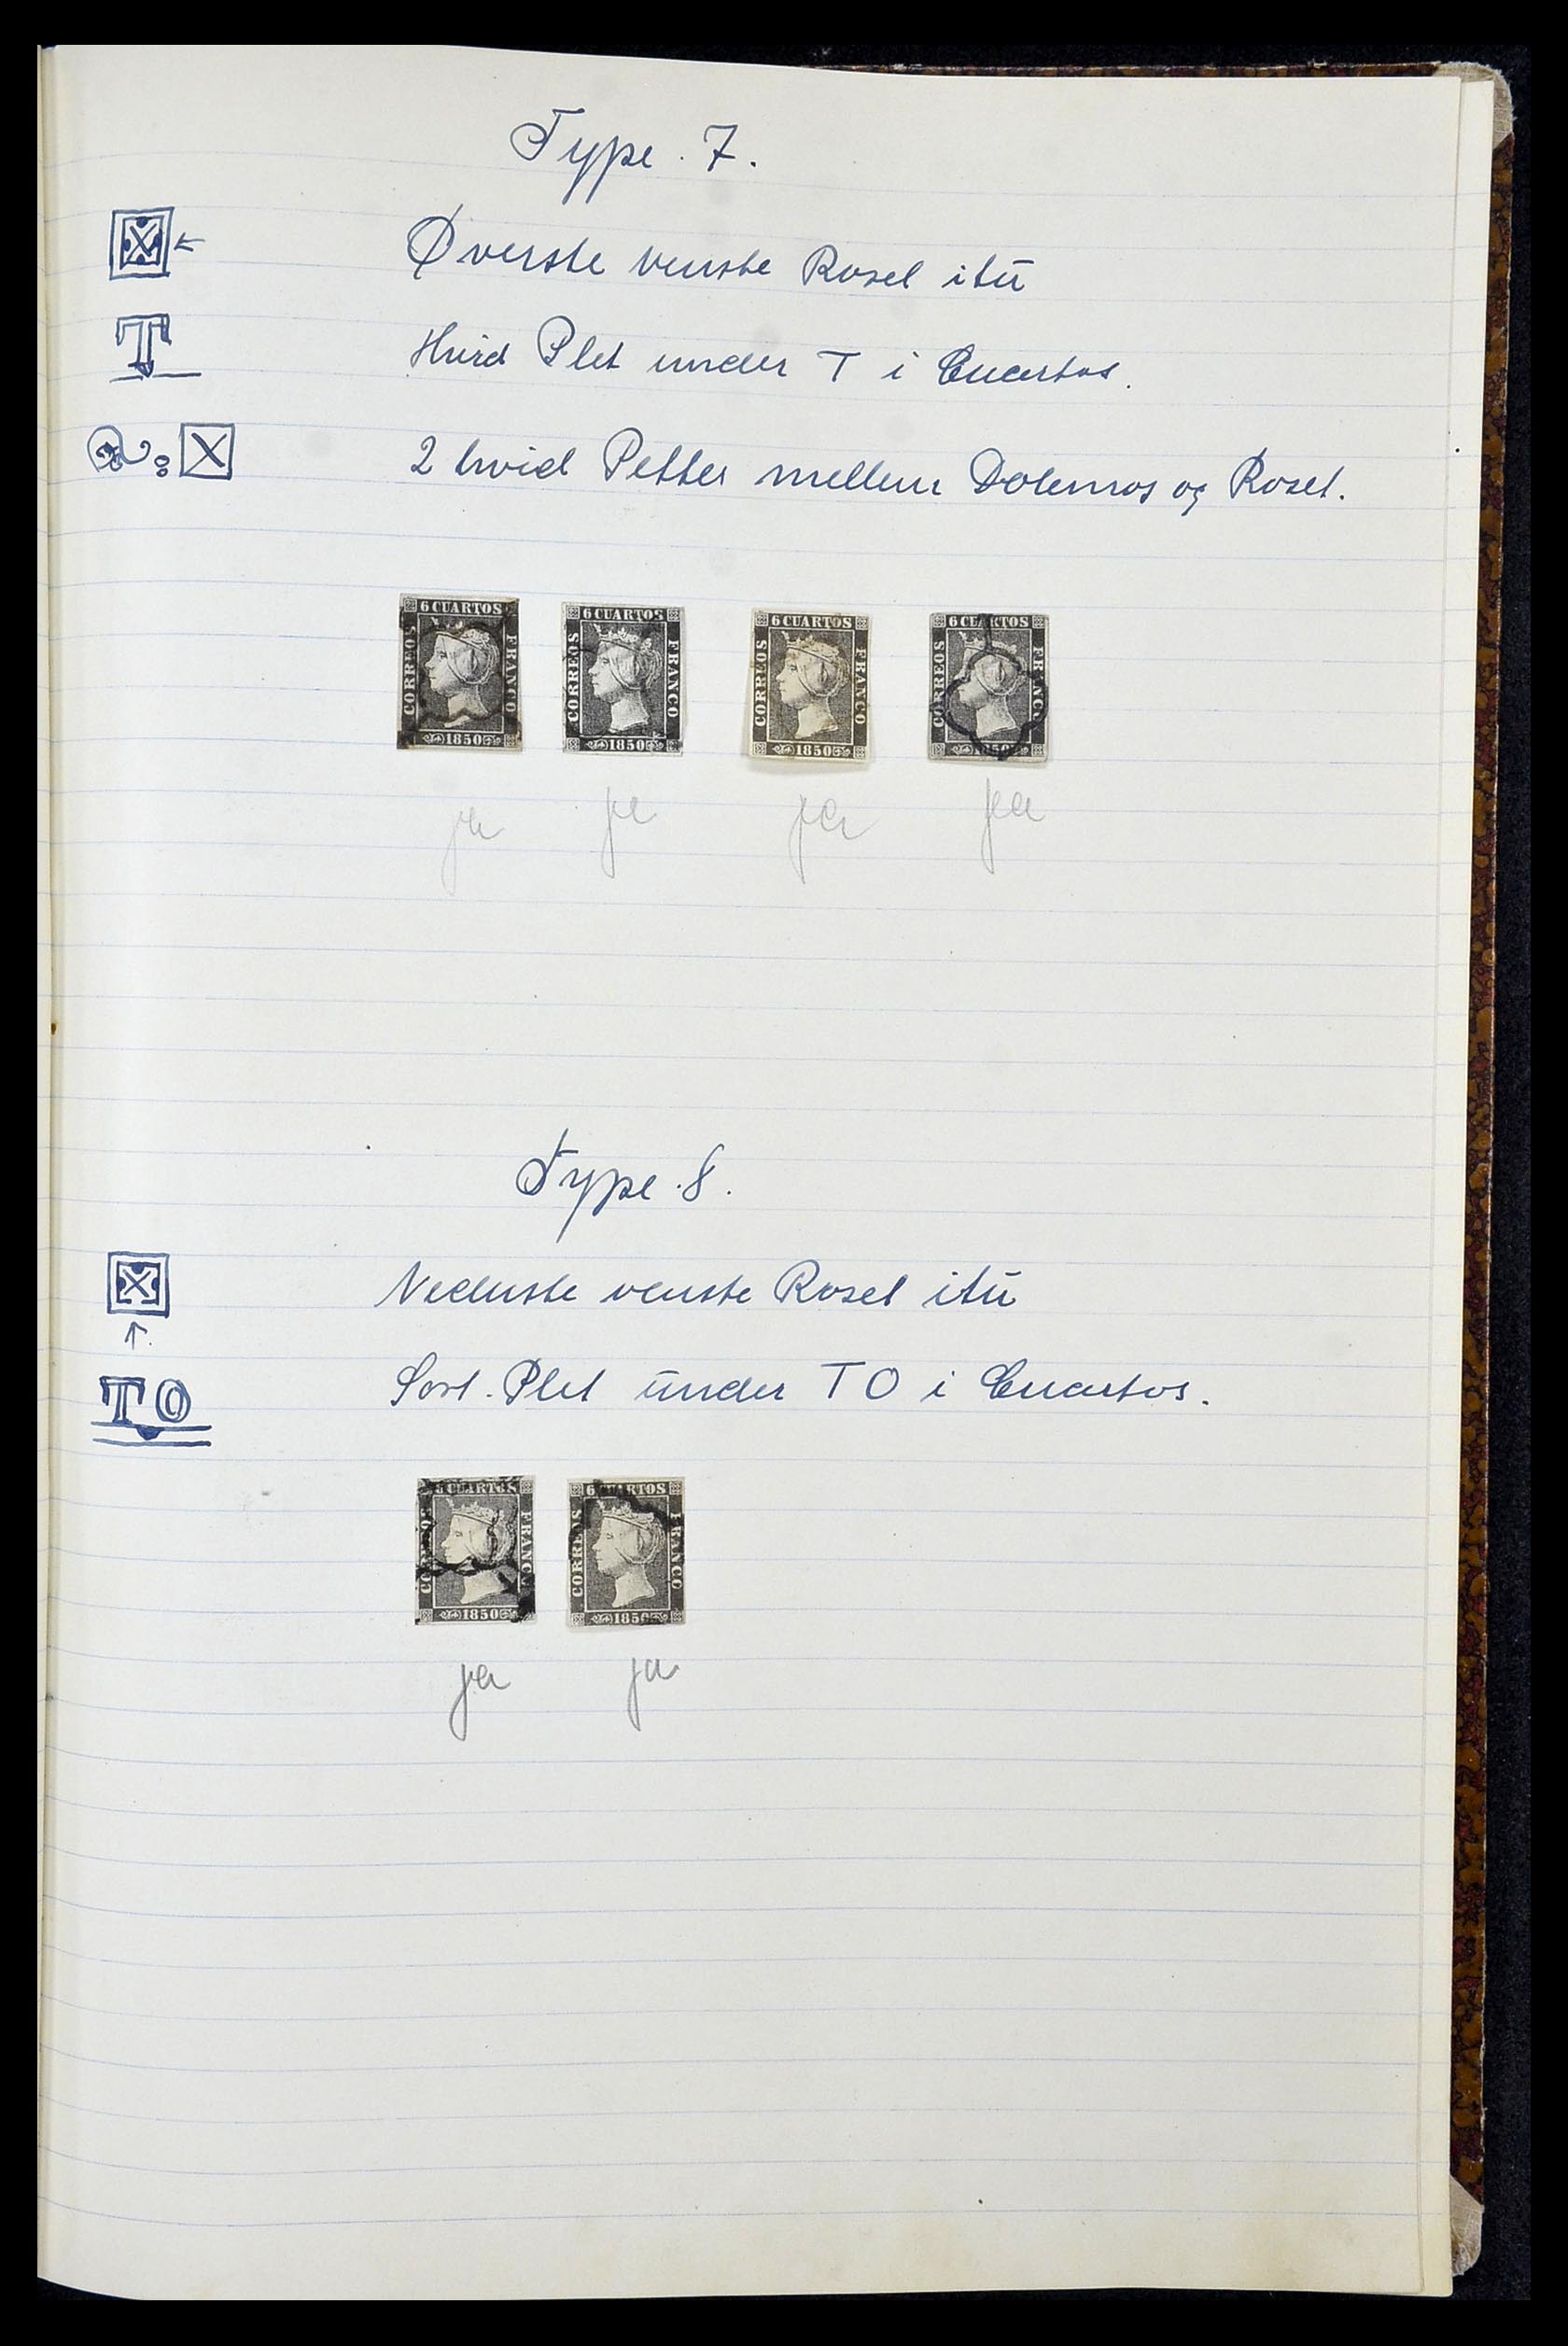 Type. 7.
Øverste venste Roset itu
Hvid Plet under T i Cuartos.
T
2 hvid Petter mellem og Roset.
6 CUARTOS CORREOS FRANCO 1850
6 CUARTOS CORREOS FRANCO 1850
6 CUARTOS CORREOS FRANCO 1850
6 CUARTOS CORREOS FRANCO 1850
ja ja ja ja
Type. 8.
Nederste venste Roset itu
Sort. Plet under TO i Cuartos.
TO
6 CUARTOS CORREOS FRANCO 1850
6 CUARTOS CORREOS FRANCO 1850
ja ja